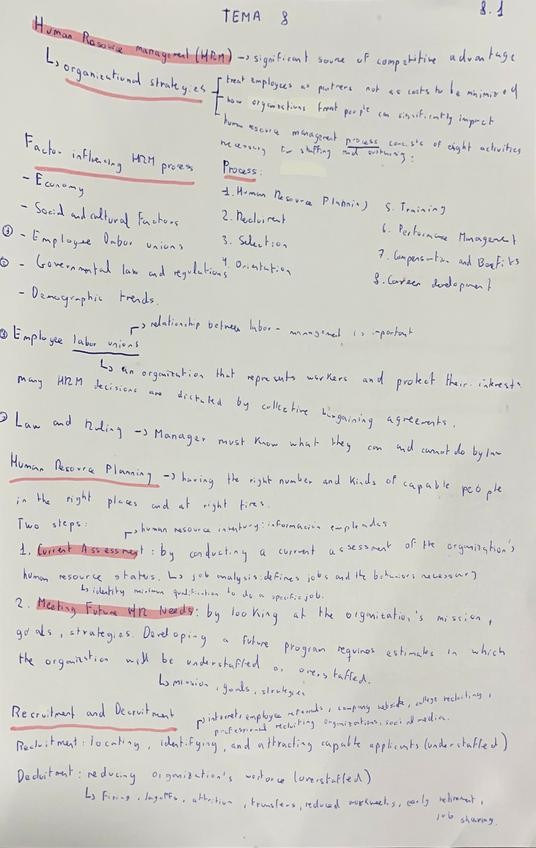 TEMA 8
8.1
Human Resource management (HRM) -> significant source of competitive advantage
↳ organizational strategies
treat employees as partners not as costs to be minimized
how organizations treat people can significantly impact
human resource management process consists of eight activities
necessary for staffing and sustaining:
Factor influencing HRM process
Process:
- Economy
1. Human Resource Planning
5. Training
- Social and cultural Factors
2. Recluirent
6. Performance Management
① - Employee Labor unions
3. Selection
7. Compensation and Benefits
② - Governmental law and regulations
4. Orientation
8. Career development
- Demographic trends.
↱ relationship between labor-management is important
① Employee labor unions
↳ an organization that represents workers and protect their interests
many HRM decisions are dictated by collective bargaining agreements.
② Law and Ruling -> Manager must know what they can and cannot do by law
Human Resource Planning -> having the right number and kinds of capable people
in the right places and at right tires.
Two steps: ↱ human resource inventory: informacion empleadas
1. Current Assessment: by conducting a current assessment of the organization's
human resource status. ↳ job analysis: defines jobs and the behaviors necessary
↳ identity minimum qualification to do a specific job.
2. Meeting Future HR Needs: by looking at the organization's mission,
goals, strategies. Developing a future program requires estimates in which
the organization will be understaffed or overstaffed.
↳ mission, goals, strategies
Recruitment and Decruitment
↱ internet, employee referrals, company website, college recruiting,
professional recruiting organizations, social media.
Recluitment: locating, identifying, and attracting capable applicants (understaffed)
Decluitment: reducing organization's workforce (overstaffed)
↳ Firing, layoffs, attrition, transfers, reduced workweeks, early retirement,
job sharing.